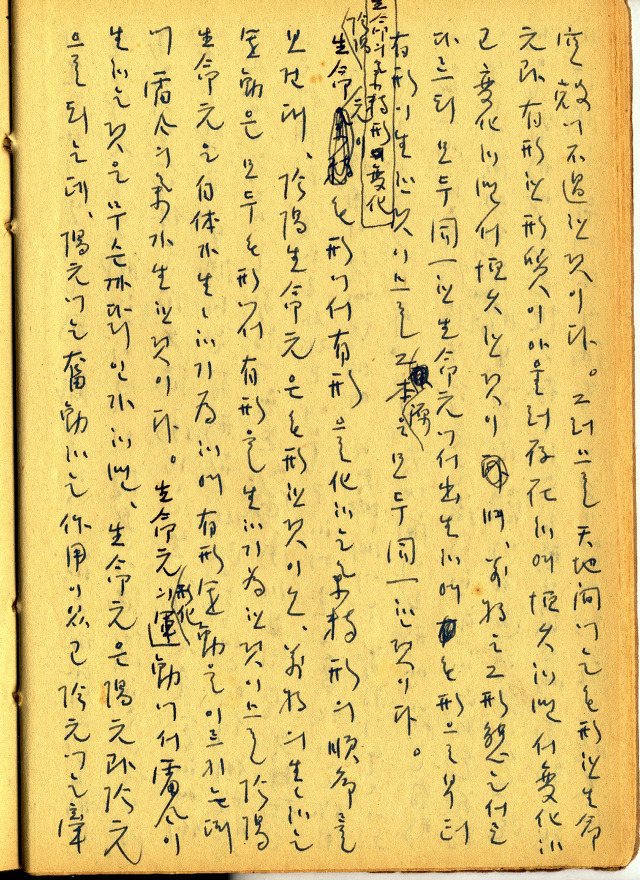 空殼에不過한것이다。그러므로天地間에는무形한生命
元과有形한形質이아울러存在하여恒久하면서変化하
고変化하면서恒久한것이며、万物은그形態는서로
다르되모두同一한生命元에서出生하여무形으로부터
有形이生한것이므로그本源은모두同一한것이다。
生命의氣가物形으로変化
陰陽
生命元이무形에서有形으로化하는氣物形의順命를
보건대、陰陽生命元은무形한것이오、万物의生하는
運動은모두무形에서有形을生하기為한것이므로陰陽
生命元은自体가生生하기為하여有形運動을이르키는때
에電分의氣가生한것이다。生命元의形化運動에서電分이
生하는것은무슨까닭인가하면、生命元은陽元과陰元
으로되는데、陽元에는奮動하는作用이있고陰元에는牽